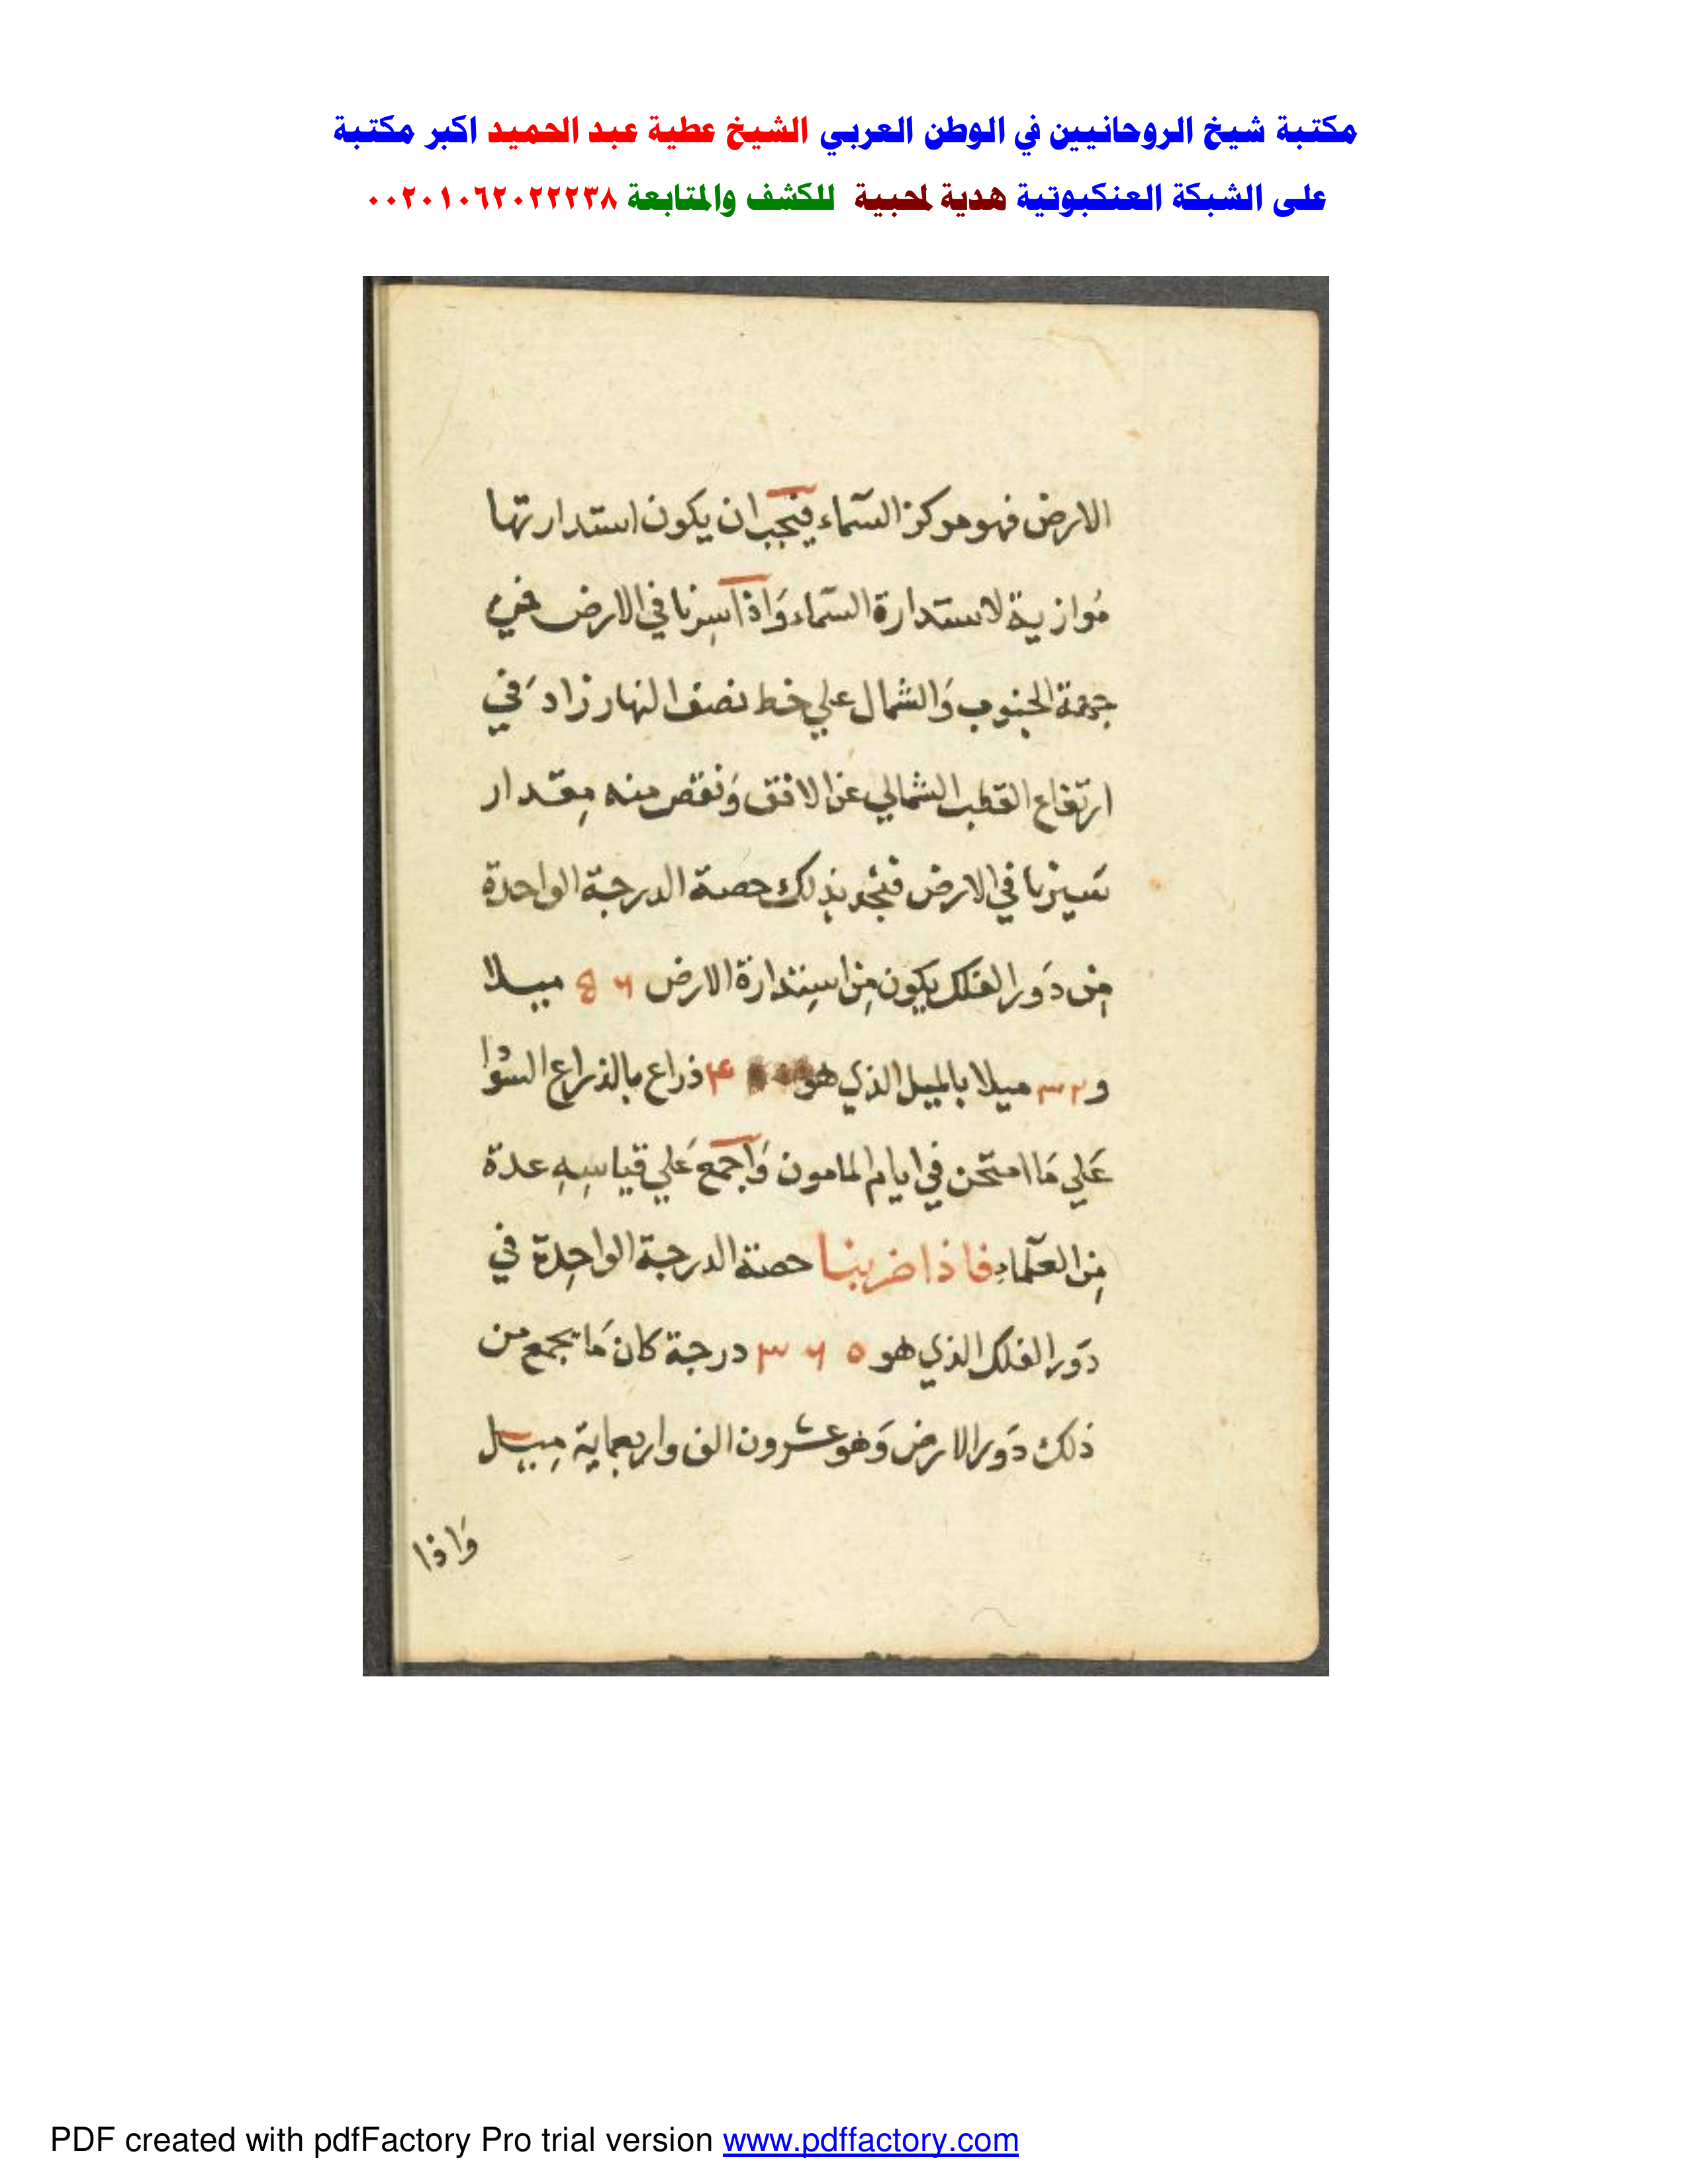 مكتبة شيخ الروحانيين في الوطن العربي الشيخ عطية عبد الحميد اكبر مكتبة
على الشبكة العنكبوتية هدية لمحبية للكشف والمتابعة ٠٠٢٠١٠٦٢٠٢٢٢٣٨
الارض فهو موكز السّماء فيجب ان يكون استدارتها
مُوازية لاستدارة السّماء وَاذا سِرنا في الارض في
جهة الجنوب وَالشمال علي خط نصف النهار زاد في
ارتفاع القطب الشمالي عن الافق وَنقص منه مِقدار
سَيرنا في الارض فنجد بذلك حصة الدرجة الواحدة
مِن دَور الفلك يكون مِن اسِتدارة الارض ٥٦ ميلا
و٣٢ ميلا بالميل الذي هو ذراع بالذراع السودا
عَلي مَا امتحن في ايام المامون وَاجمع عَلي قياسِهِ عدة
مِن العلماءِ فاذا ضربنا حصة الدرجة الواحِدة في
دَور الفلك الذي هو ٣٦٥ درجة كان مَا يجمع من
ذلك دَور الارض وَهو عشرون الف واربعماية مِيل
وَاذا
PDF created with pdfFactory Pro trial version www.pdffactory.com